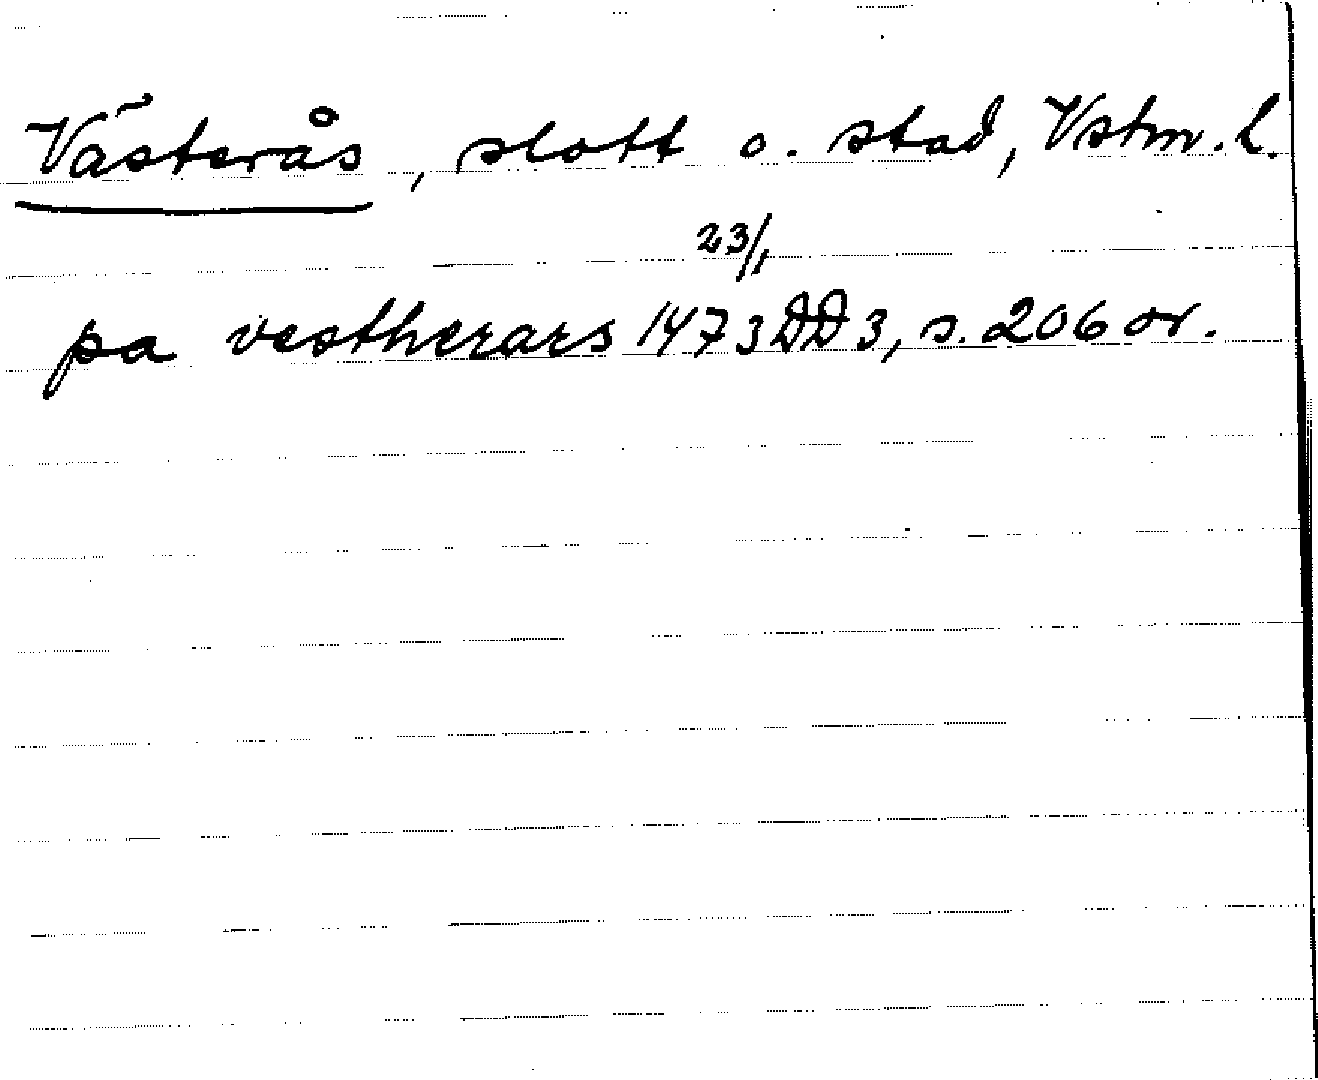 Västerås, slott o. stad, Vstm. L.
23/1
pa vestherars 1473 DD 3, s. 206 or.